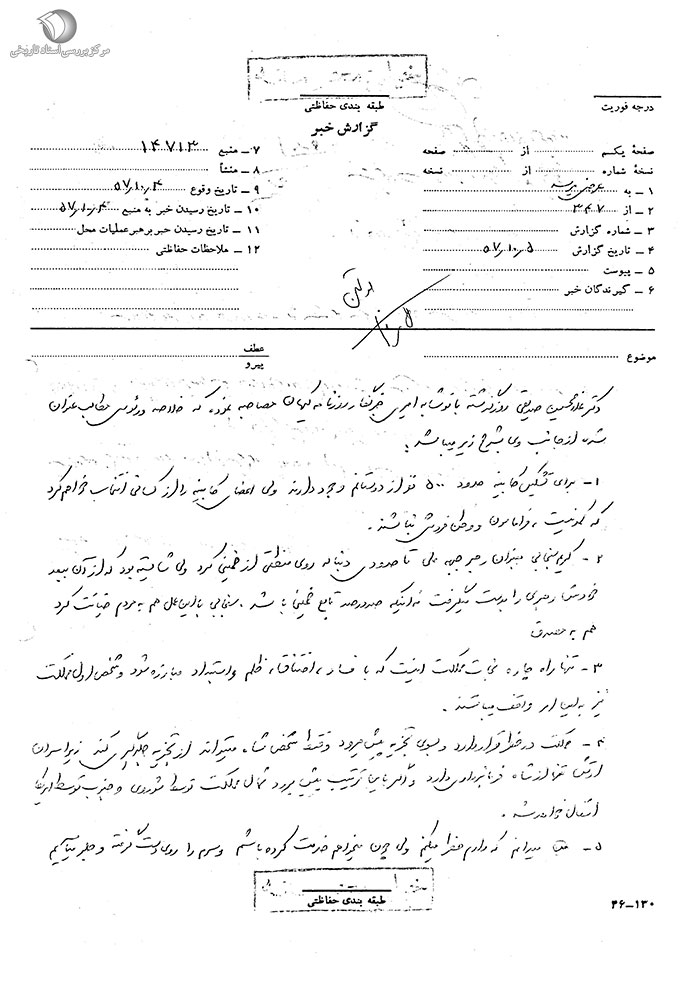 مرکز بررسی اسناد تاریخی
طبقه بندی حفاظتی
گزارش خبر
درجه فوریت
صفحهٔ یکم از صفحه
نسخهٔ شماره از نسخه
۱ - به
۲ - از ۳۴۷
۳ - شماره گزارش
۴ - تاریخ گزارش ۵۷٫۱۰٫۵
۵ - پیوست
۶ - گیرندگان خبر
۷ - منبع ۱۴۷۱۳
۸ - منشأ
۹ - تاریخ وقوع ۵۷٫۱۰٫۴
۱۰ - تاریخ رسیدن خبر به منبع ۵۷٫۱۰٫۴
۱۱ - تاریخ رسیدن خبر برهبر عملیات محل
۱۲ - ملاحظات حفاظتی
موضوع
عطف
پیرو
دکتر غلامحسین صدیقی روز گذشته با نوشابه امیری خبرنگار روزنامه کیهان مصاحبه نموده که خلاصه و رئوس مطالب عنوان
شده از جانب وی بشرح زیر میباشد:
۱- برای تشکیل کابینه حدود ۵۰۰ نفر از دوستانم وجود دارند ولی اعضای کابینه را از کسانی انتخاب خواهم کرد
که کمونیست، فراماسون و وطن فروش نباشند.
۲- کریم سنجابی بعنوان رهبر جبهه ملی تا حدودی دنباله روی منطقی از خمینی کرد ولی شایسته بود که از آن ببعد
خودش رهبری را بدست میگرفت نه اینکه صددرصد تابع خمینی باشد. سنجابی با این عمل هم به مردم خیانت کرد
هم به مصدق
۳- تنها راه چاره نجات مملکت اینست که با فساد، اختناق، ظلم و استبداد مبارزه شود و شخص اول مملکت
نیز به این امر واقف میباشند.
۴- مملکت در خطر قرار دارد و بسوی تجزیه پیش میرود و فقط شخص شاه میتواند از تجزیه جلوگیری کند زیرا سران
ارتش تنها از شاه فرمانبرداری دارد و اگر باین ترتیب پیش برود شمال مملکت توسط شوروی و جنوب توسط امریکا
اشغال خواهد شد.
۵- میدانم که دارم خطر میکنم ولی چون میخواهم خدمت کرده باشم و سرم را روی دست گرفته و جلو میآیم
طبقه بندی حفاظتی
۴۶-۱۳۰